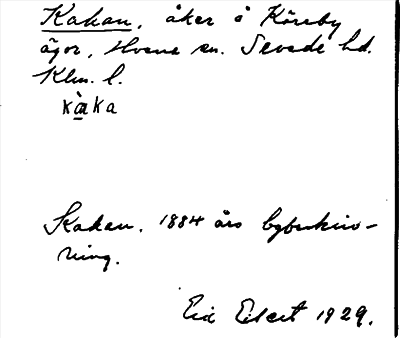 Kakan, åker å Köreby
ägor, Hvena sn. Sevede hd.
Klm. l.
kàka
Kakan. 1884 års bybeskriv-
ning.
1929.